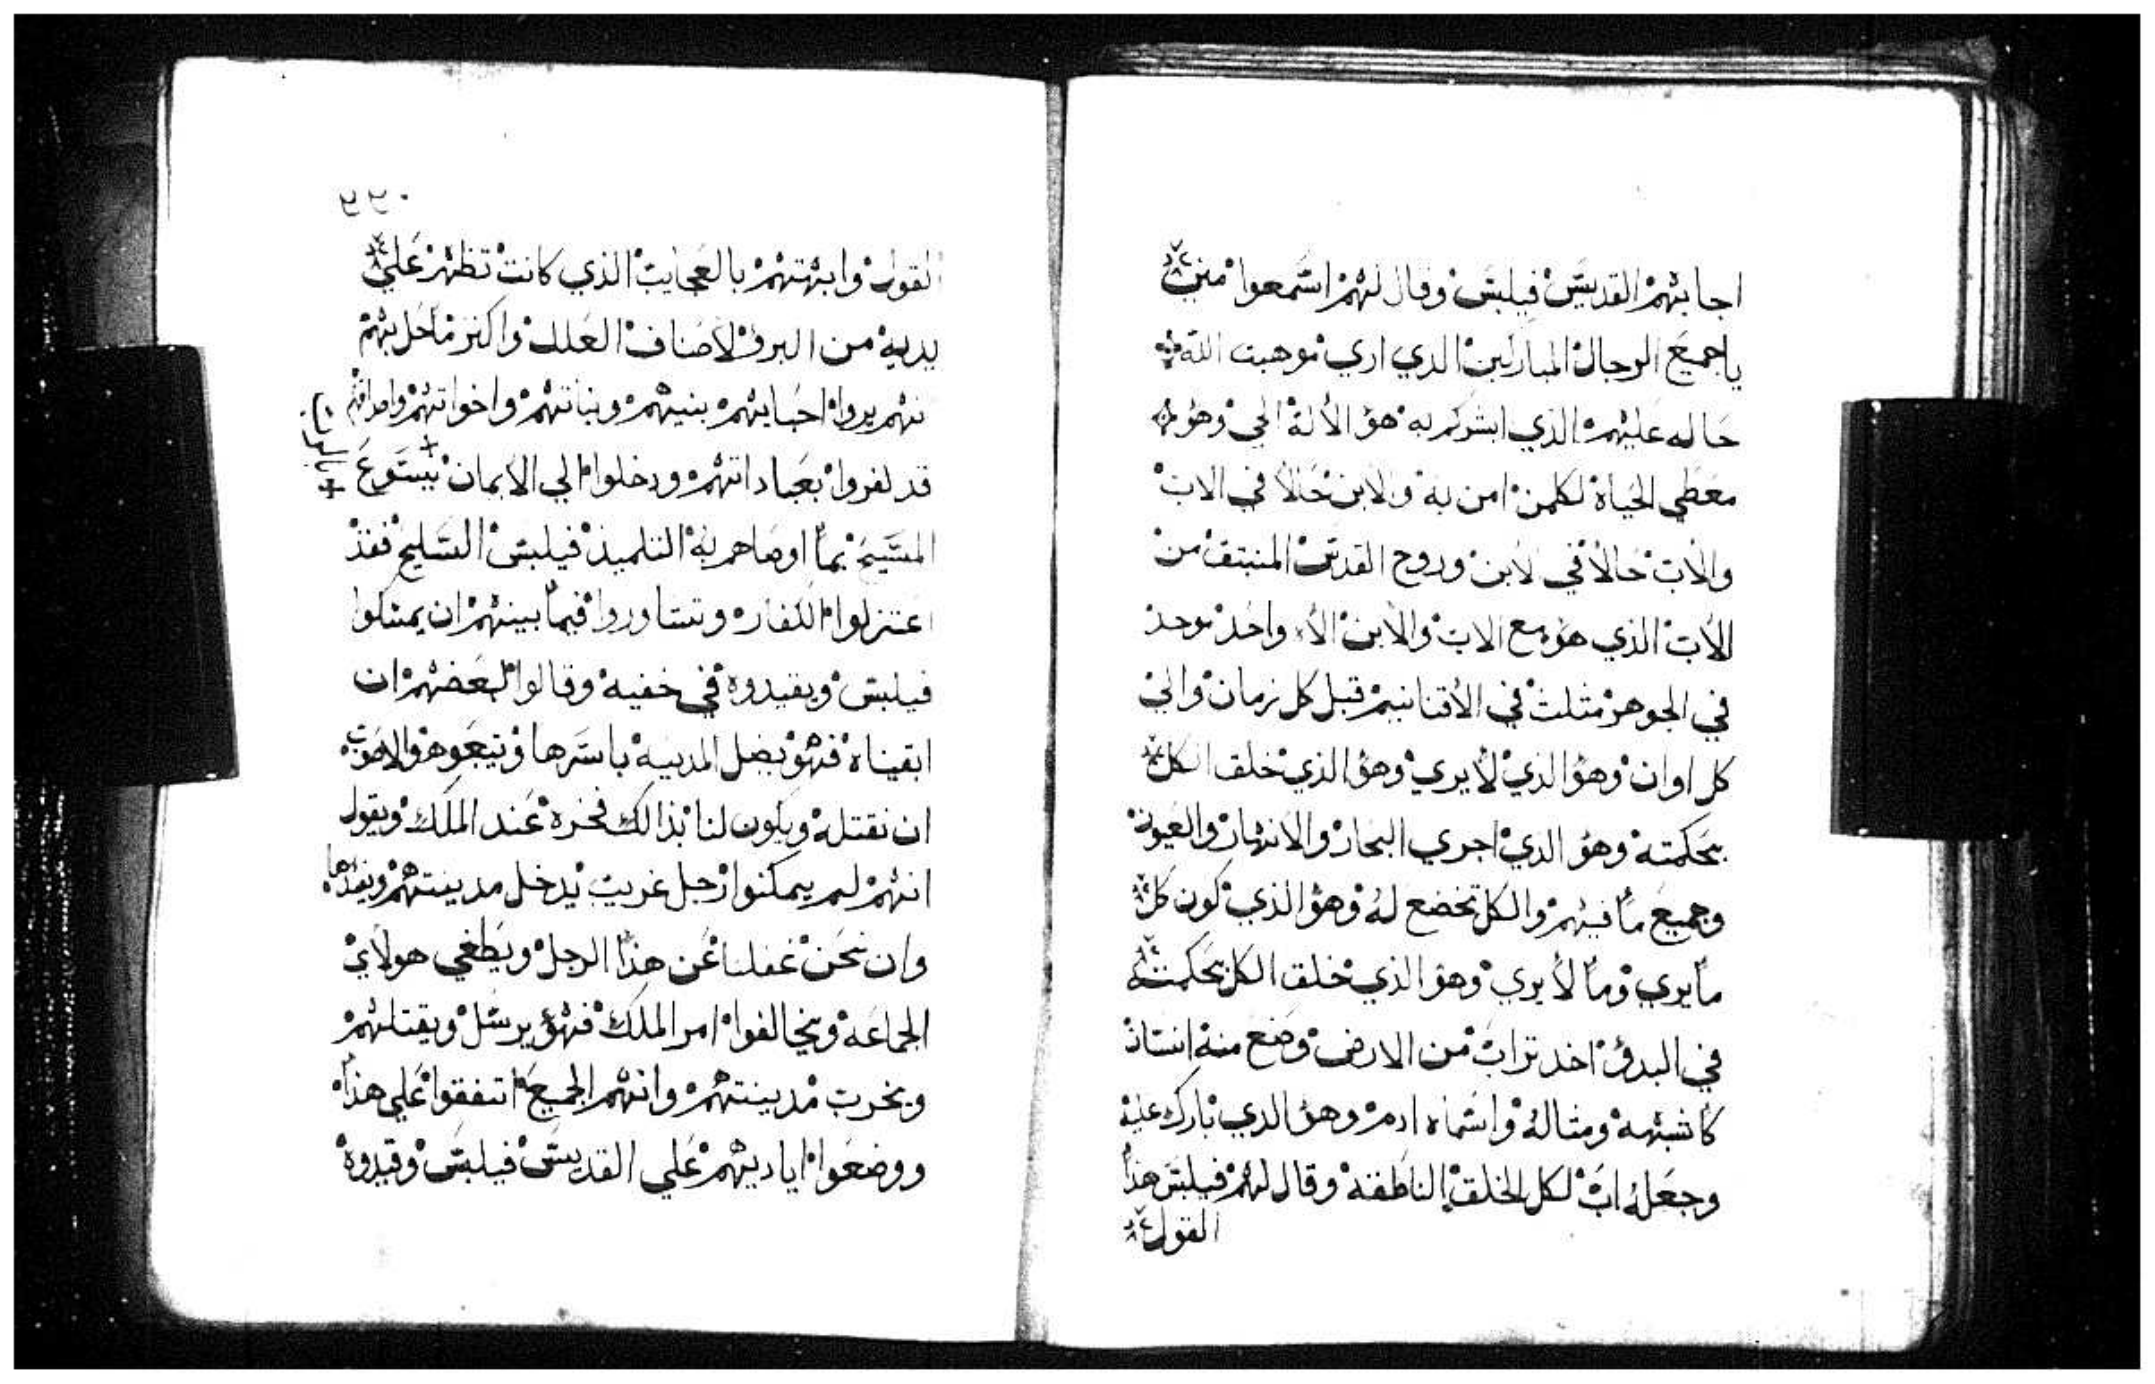 اجابتهم القديس فيلبس وقال لهم اسمعوا مني
ياجميع الرجال المباركين الدي اري موهبت الله
حاله عليهم الذي ابشركم به هو الالة الحي وهو
معطي الحياة لكلمن امن به والابن حالا في الاب
والاب حالا في الابن وروح القدس المنبتق من
الاب الذي هو مع الاب والابن الاه واحد موحد
في الجوهر مثلث في الاقنانيم قبل كل زمان والي
كل اوان وهو الدي لايري وهو الذي خلق الكل
بحكمته وهو الدي اجري البحار والانهار والعيون
وجميع ما فيهم والكل تخضع له وهو الذي كون كل
مايري وما لايري وهو الذي خلق الكل بحكمته
في البدو اخد تراب من الارض وضع منه انسان
كاشبهه ومثاله واسماه ادم وهو الدي بارك عليه
وجعله اب لكل الخلق الناطقه وقال لهم فيلبس هذا
القول
٢٢٠
القول وابهتهم بالعجايب الذي كانت تظهر علي
يديه من البرؤ لاصناف العلل واكتر ماحل بهم
انهم يروا احبايهم بنيهم وبناتهم واخواتهم
قد كفروا بعباداتهم ودخلوا الي الايمان بيسوع
المسيح بما اوهاهم به التلميذ فيلبس السليح فقد
اعتزلوا الكفار وتشاوروا فيما بينهم ان يمسكوا
فيلبس ويقيدوه في خفيه وقالوا لبعضهم ان
ابقيناه فهو يضل المدينه باسرها ويتبعوه والاصوب
ان نقتله ويكون لنا بذالك فخره عند الملك ويقول
انهم لم يمكنوا رجل غريب يدخل مدينتهم
وان نحن غفلنا عن هذا الرجل ويطغي هولاي
الجماعه ويخالفوا امر الملك فهو يرسل ويقتلهم
ويخرب مدينتهم وانهم الجميع اتفقوا علي هذا
ووضعوا اياديهم علي القديس فيلبس وقيدوه